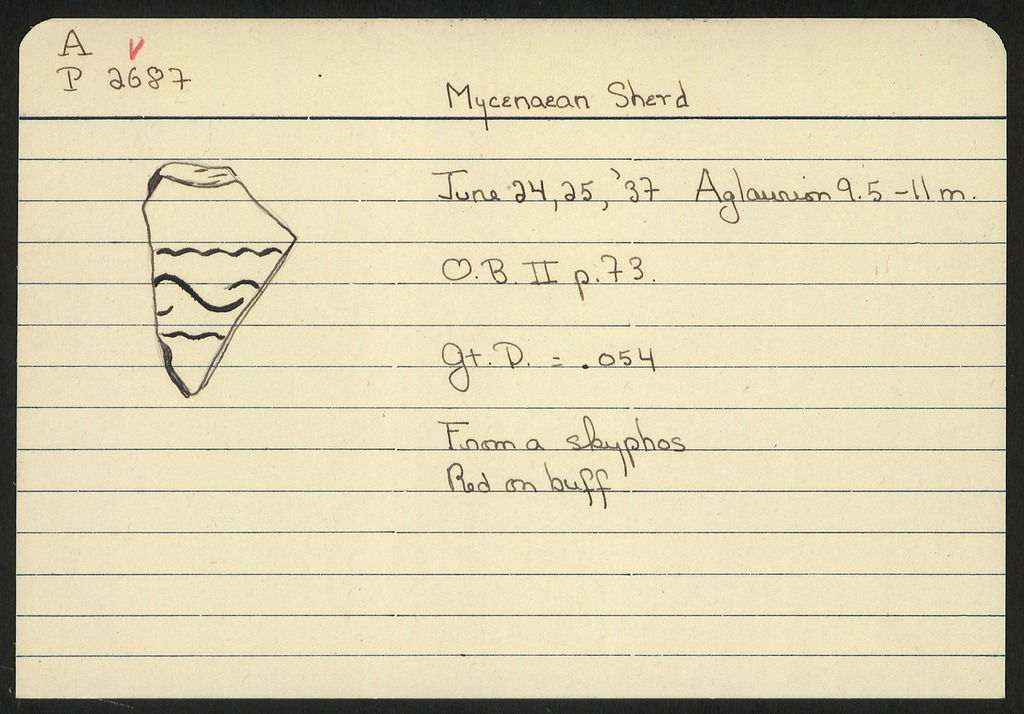 A
P 2687
Mycenaean Sherd
June 24, 25, '37 Aglaurion 9.5 - 11 m.
O.B. II p. 73.
Gt. D. = .054
From a skyphos
Red on buff